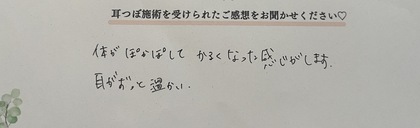 耳つぼ施術を受けられたご感想をお聞かせください♡
体がぽかぽかして かるくなった感じがします。
耳がずっと温かい。